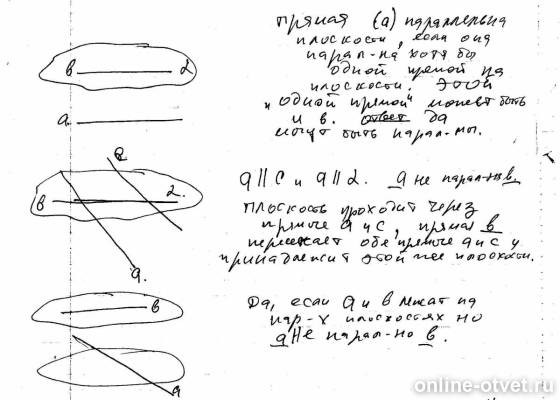 прямая (а) параллельна
плоскости, если она
парал-на хотя бы
одной прямой на
плоскости. Этой
"одной прямой" может быть
и в. ответ да
могут быть парал-мы.
в 2
а
в
в 2.
а.
а || с и а || 2. а не парал-на в
плоскость проходит через
прямые а и с, прямая в
пересекает обе прямые а и с и
принадлежит этой же плоскости.
в
а
Да, если а и в лежат на
пар-х плоскостях но
а не парал-но в.
online-otvet.ru